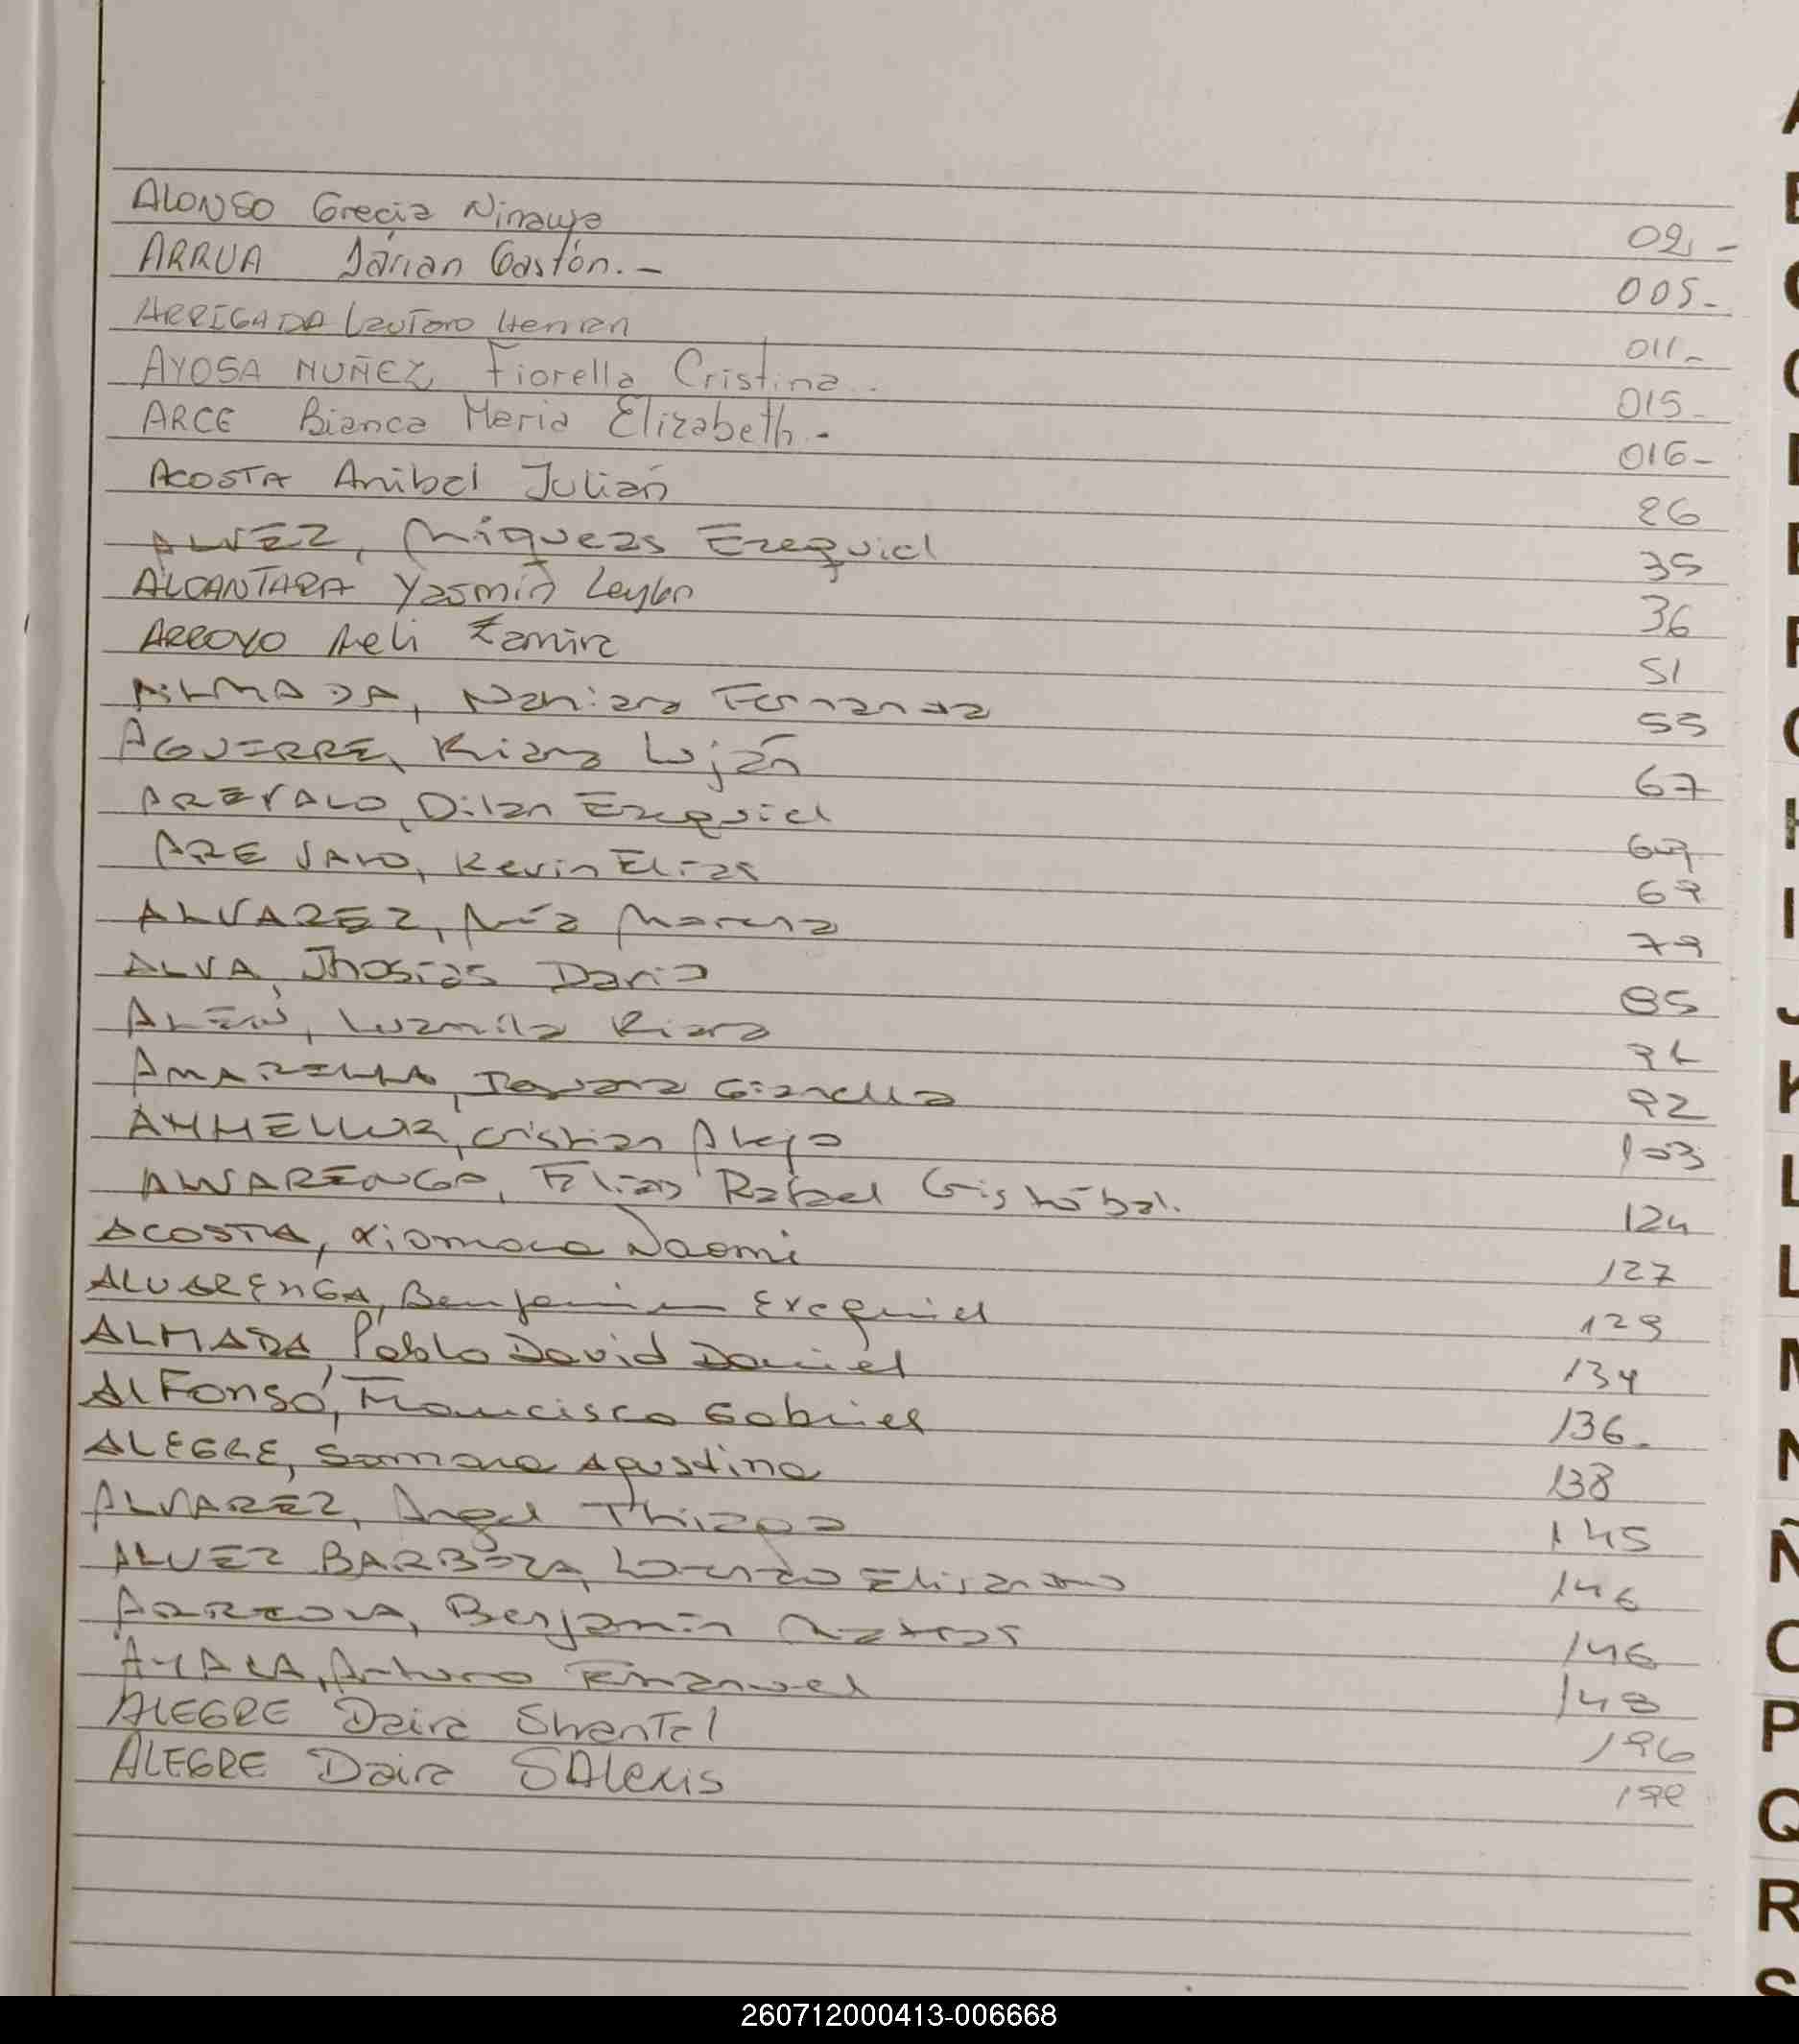 ALONSO Grecia Ninawa 02.-
ARRUA Darian Gastón.- 005-
ARRIGADA Lautaro Hernan 011-
AYOSA NUÑEZ Fiorella Cristina. 015-
ARCE Bianca Maria Elizabeth.- 016-
ACOSTA Anibal Julián 26
ALVEZ, Miqueas Ezequiel 35
ALCANTARA Yasmín Leyla 36
ARROYO Zamira 51
ALMADA, Nahiara Fernanda 55
AGUERRE, Kiara Luján 67
AREVALO, Dilan Ezequiel 69
AREVALO, Kevin Elias 69
ALVAREZ, Mía Morena 79
ALVA, Jhosias Dario 85
Luzmila Kiara 91
AMARILLA, Gianella 92
Cristian Alejo 103
ALVARENGO, Elias Rafael Cristóbal. 124
ACOSTA, Xiomara Naomi 127
ALVARENGA, Benjamin Exequiel 129
ALMADA, Pablo David Daniel 134
ALFonso, Francisco Gabriel 136-
ALEGRE, Samara Agustina 138
ALVAREZ, Angel Thiago 145
ALVEZ BARBOZA, Lorenzo 146
ARREOLA, Benjamín 146
AYALA, Arturo Emanuel 148
ALEGRE Daira Shantal 196
ALEGRE Daira SAlexis
A
E
F
H
I
J
K
L
L
M
N
Ñ
O
P
Q
R
S
260712000413-006668